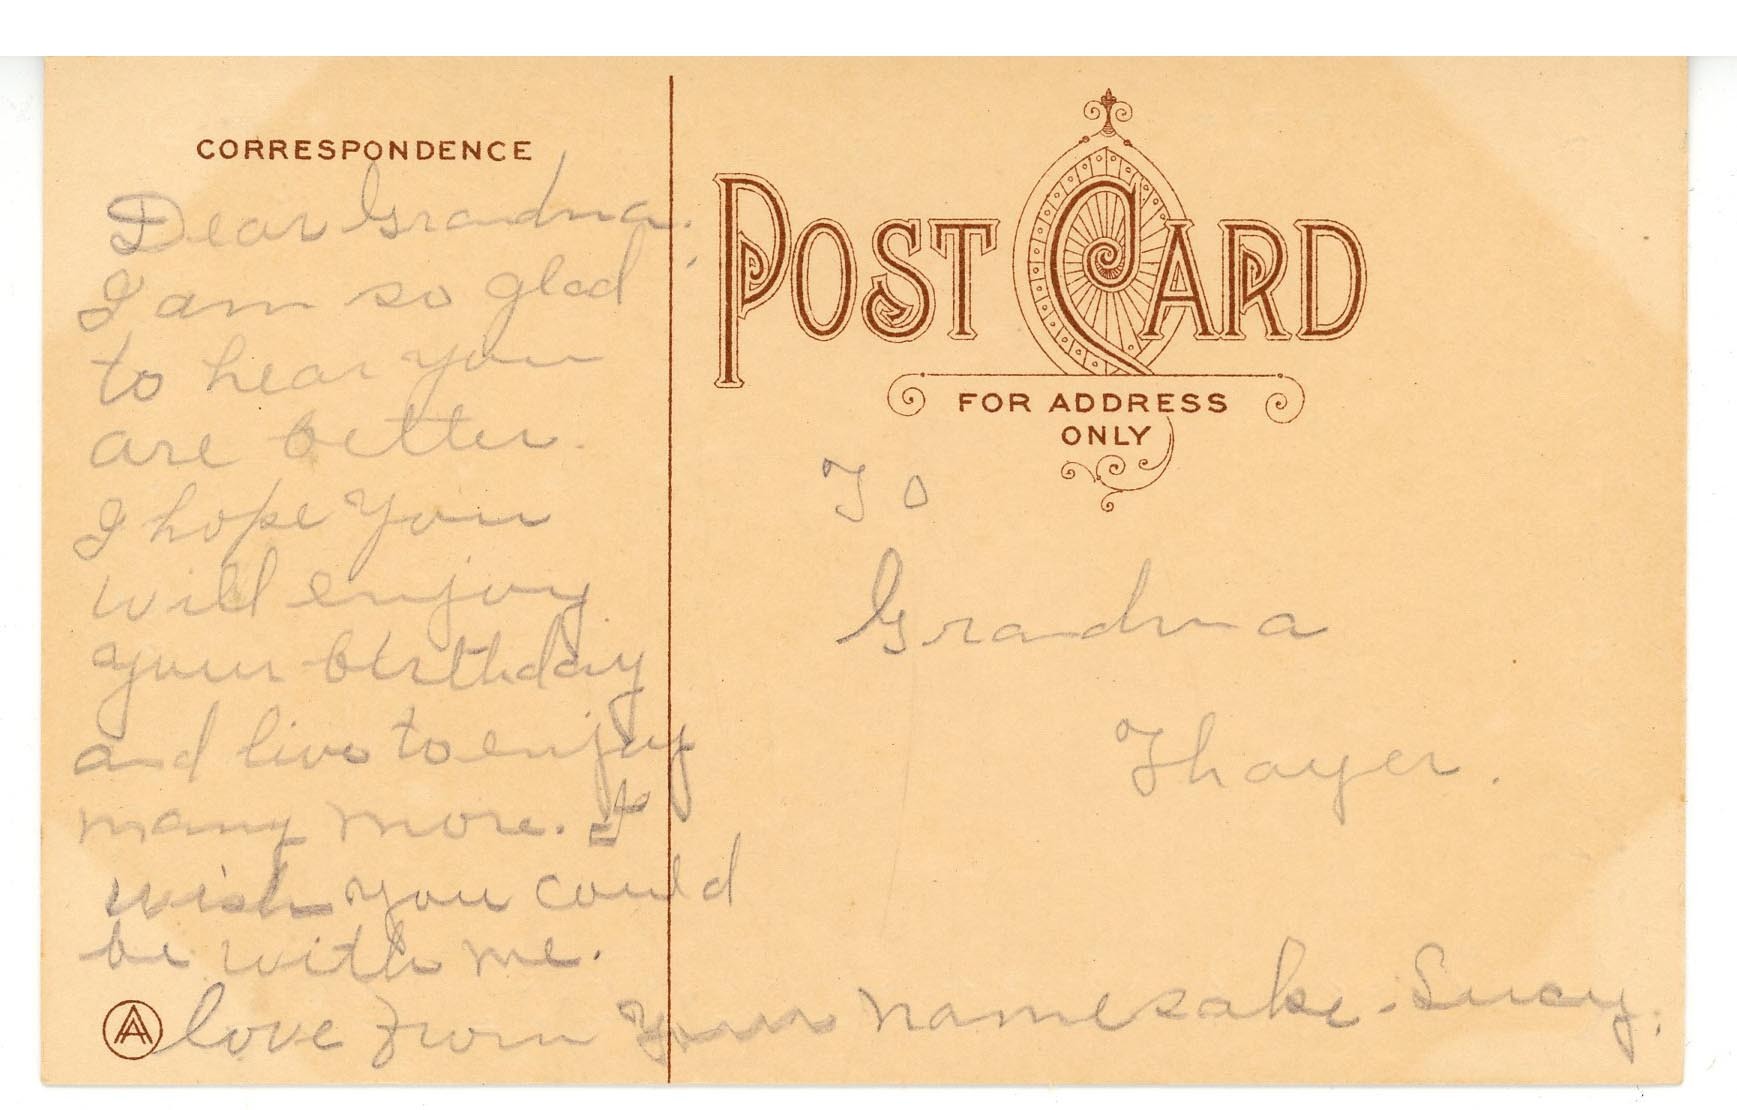 CORRESPONDENCE
Dear Grandma.
I am so glad
to hear you
are better.
I hope you
will enjoy
your birthday
and live to enjoy
many more. I
wish you could
be with me.
love from Your namesake. Lucy.
POST CARD
FOR ADDRESS
ONLY
To
Grandma
Thayer.